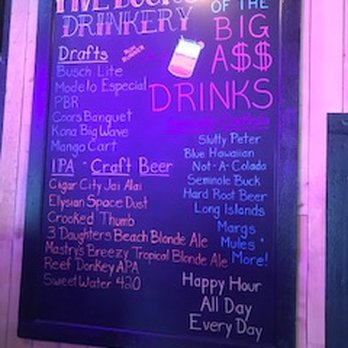 FIVE BUCKS
DRINKERY
Drafts
Busch Lite
Modelo Especial
PBR
Coors Banquet
Kona Big Wave
Mango Cart
IPA - Craft Beer
Cigar City Jai Alai
Elysian Space Dust
Crooked Thumb
3 Daughters Beach Blonde Ale
Mastry's Breezy Tropical Blonde Ale
Reef Donkey APA
SweetWater 420
OF THE
BIG
A$$
DRINKS
Slutty Peter
Blue Hawaiian
Not-A-Colada
Seminole Buck
Hard Root Beer
Long Islands
Margs
Mules
More!
Happy Hour
All Day
Every Day